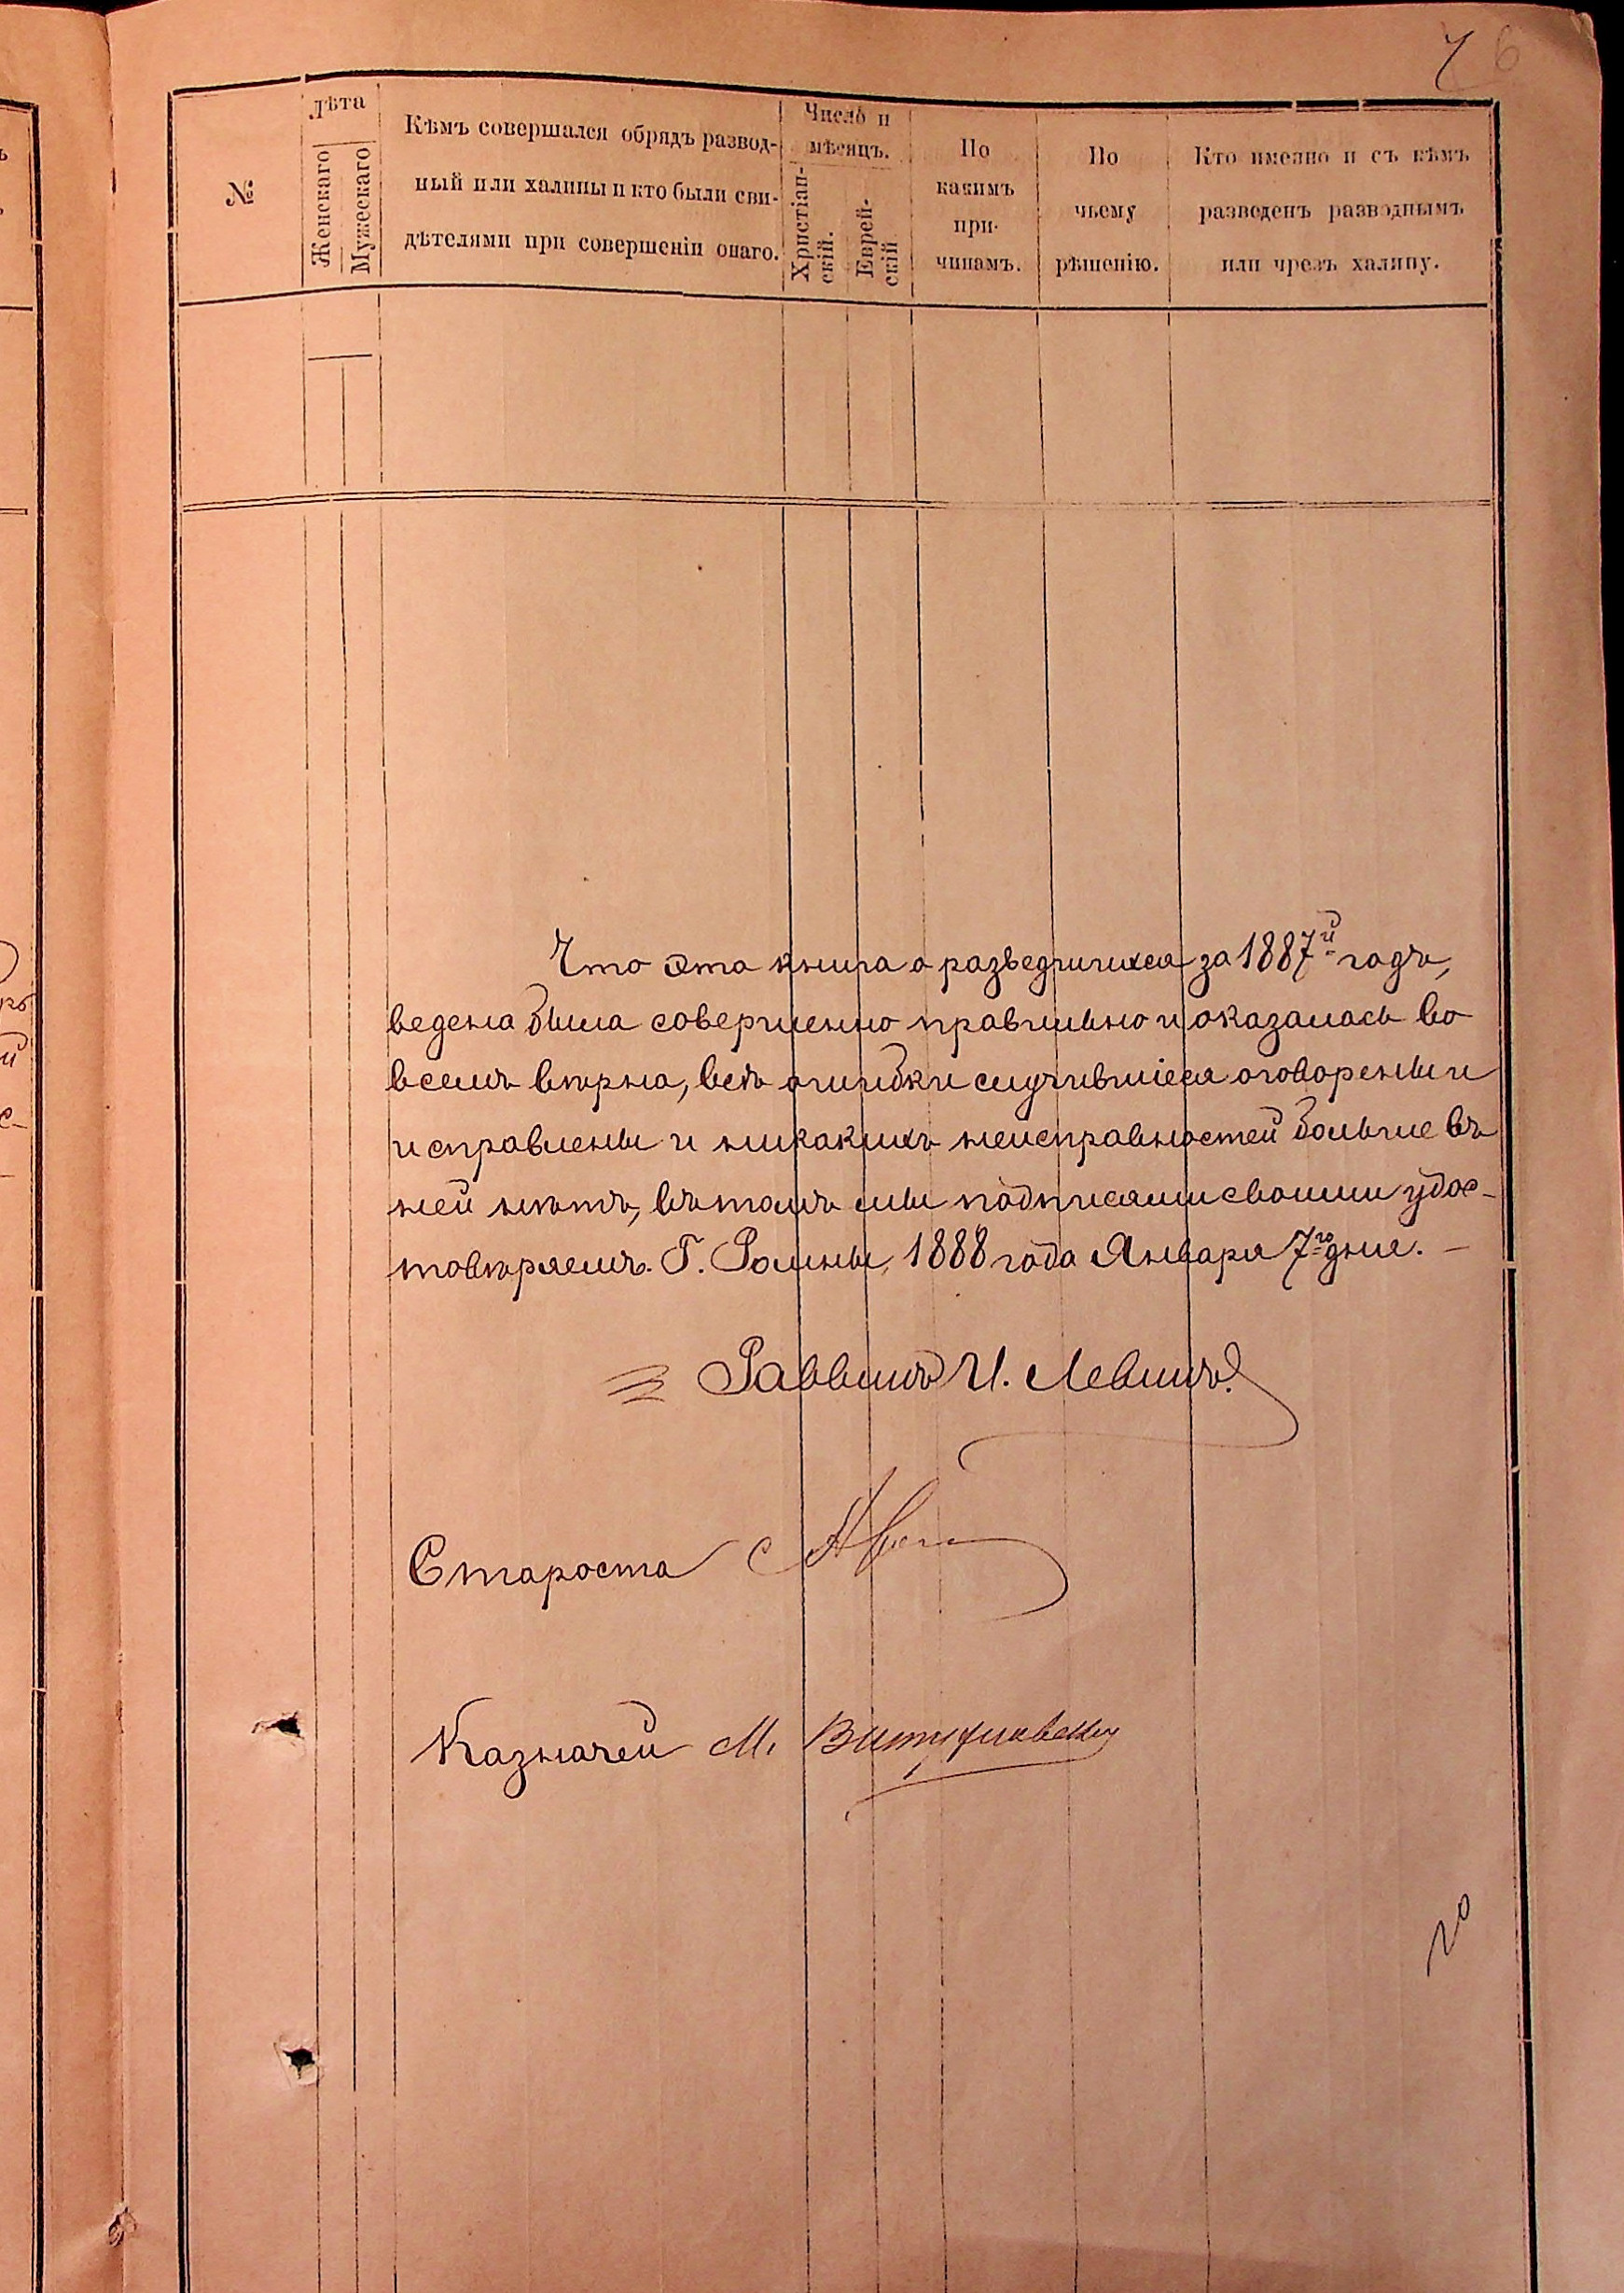 7 6
№
Лѣта
Женскаго
Мужескаго
Кѣмъ совершался обрядъ развод-
ный или халицы и кто были сви-
дѣтелями при совершеніи онаго.
Число и
мѣсяцъ.
Христіан-
скій.
Еврей-
скій
По
какимъ
при-
чинамъ.
По
чьему
рѣшенію.
Кто именно и съ кѣмъ
разведенъ разводнымъ
или чрезъ халицу.
Что эта книга о разведшихся за 1887й годъ,
ведена была совершенно правильно и оказалась во
всемъ вѣрна, всѣ ошибки случившіеся оговорены и
исправлены и никакихъ неисправностей больше въ
ней нѣтъ, въ томъ мы подписями своими удос-
товѣряемъ. Г. Ромны, 1888 года Января 7го дня. —
Раввинъ И. Левинъ.
Староста
Казначей М.
20